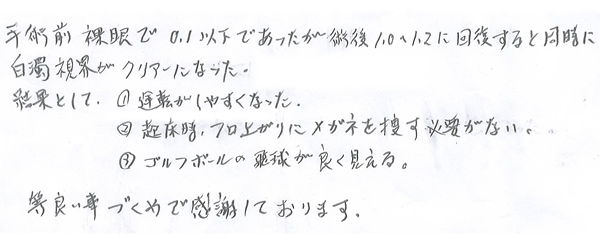 手術前 裸眼で 0.1以下であったが術後1.0~1.2に回復すると同時に
白濁視界がクリアーになった。
結果として、①運転がしやすくなった。
②起床時、フロ上がりにメガネを捜す必要がない。
③ゴルフボールの飛球が良く見える。
等良い事づくめで感謝しております。